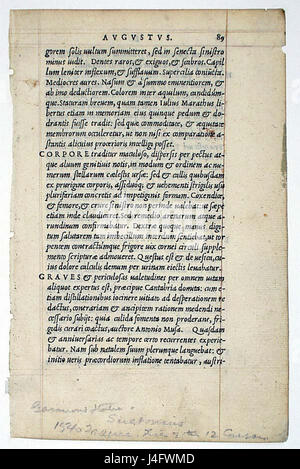 AVGVSTVS. 89
gorem solis uultum summitteret, sed in senecta sinistro
minus uidit. Dentes raros, & exiguos, & scabros. Capil
lum leniter inflexum, & sufflauum. Supercilia coniuncta.
Mediocres aures. Nasum & à summo eminentiorem, &
ab imo deductiorem. Colorem inter aquilum, candidumque.
Staturam breuem, quam tamen Iulius Marathus li
bertus etiam in memoriam eius quinque pedum & do-
drantis fuisse tradit: sed quæ commoditate, & æquitate
membrorum occuleretur, ut non nisi ex comparatione a
stantis alicuius procerioris intelligi posset.
CORPORE traditur maculoso, dispersis per pectus at
que aluum genitiuis notis, in modum & ordinem ac nu-
merum stellarum cælestis ursæ: sed & callis quibusdam
ex prurigine corporis, assiduoque & uehementi strigilis usu
plurifariam concretis ad impetiginis formam. Coxendice,
& femore, & crure sinistro non perinde ualebat: ut sæpe
etiam inde claudicaret. Sed remedio arenarum atque a-
rundinum confirmabatur. Dextræ quoque manus digi-
tum salutarem tam imbecillum interdum sentiebat, ut tor
pentem contractumque frigore uix cornei circuli supple-
mento scripturæ admoueret. Questus est & de uesica, cu-
ius dolore calculis demum per urinam eiectis leuabatur.
GRAVES & periculosas ualetudines per omnem uitam
aliquot expertus est, præcipue Cantabria domita: cum e-
tiam distillationibus iocinere uitiato ad desperationem re
dactus, contrariam & ancipitem rationem medendi ne-
cessario subijt: quia calida fomenta non proderant, fri-
gidis curari coactus, auctore Antonio Musa. Quasdam
& anniuersarias ac tempore certo recurrentes experie-
batur. Nam sub natalem suum plerunque languebat: &
initio ueris præcordiorum inflatione tentabatur, austri-
Suetonius
12 Caesars